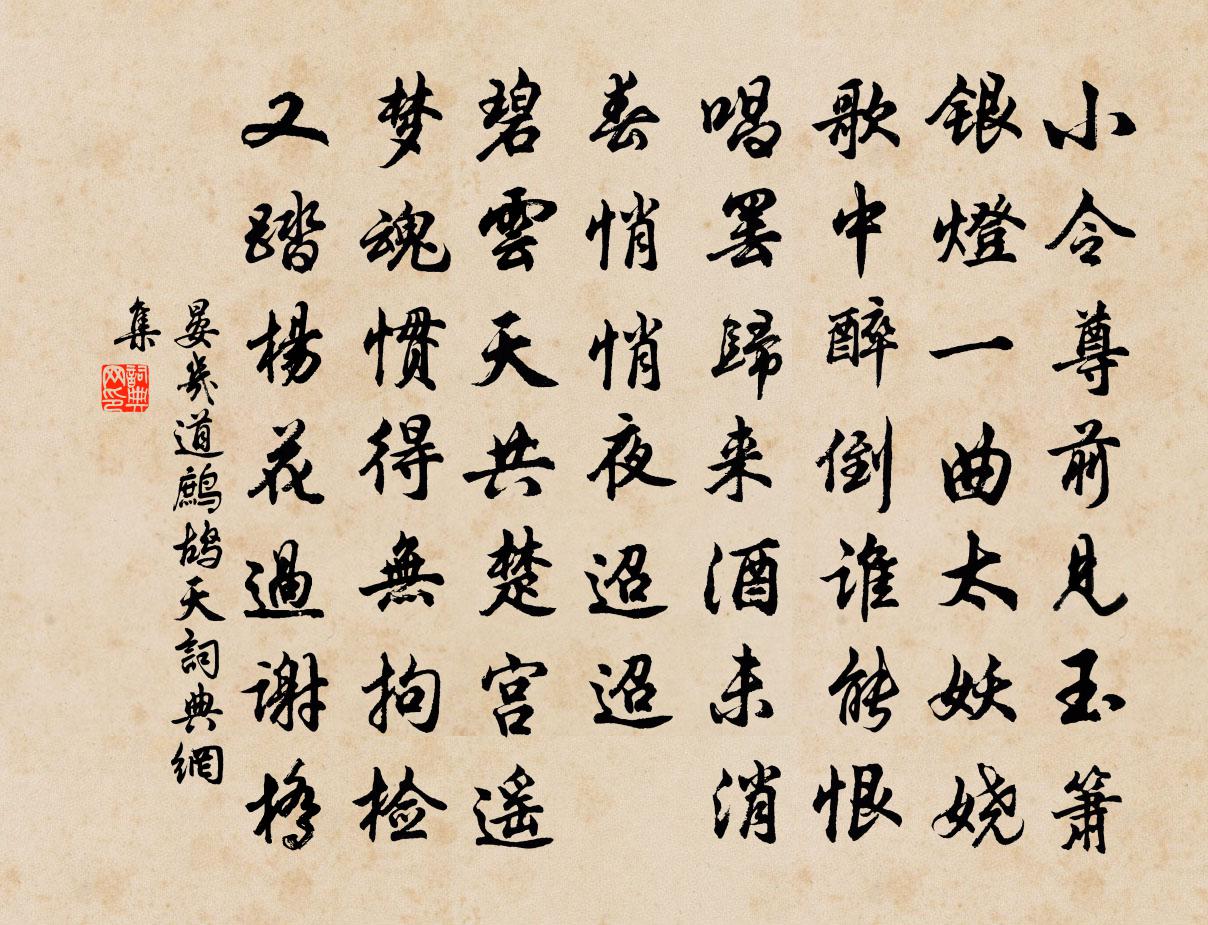 小令尊前見玉簫
銀燈一曲太妖娆
歌中醉倒誰能恨
唱罢歸来酒未消
春悄悄夜迢迢
碧雲天共楚宫遥
梦魂慣得無拘检
又踏楊花過谢橋
晏幾道鷓鴣天詞典網
集
詞典
网印